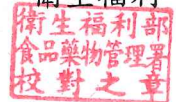 衛生福利
衛生福利部
食品藥物管理署
校對之章